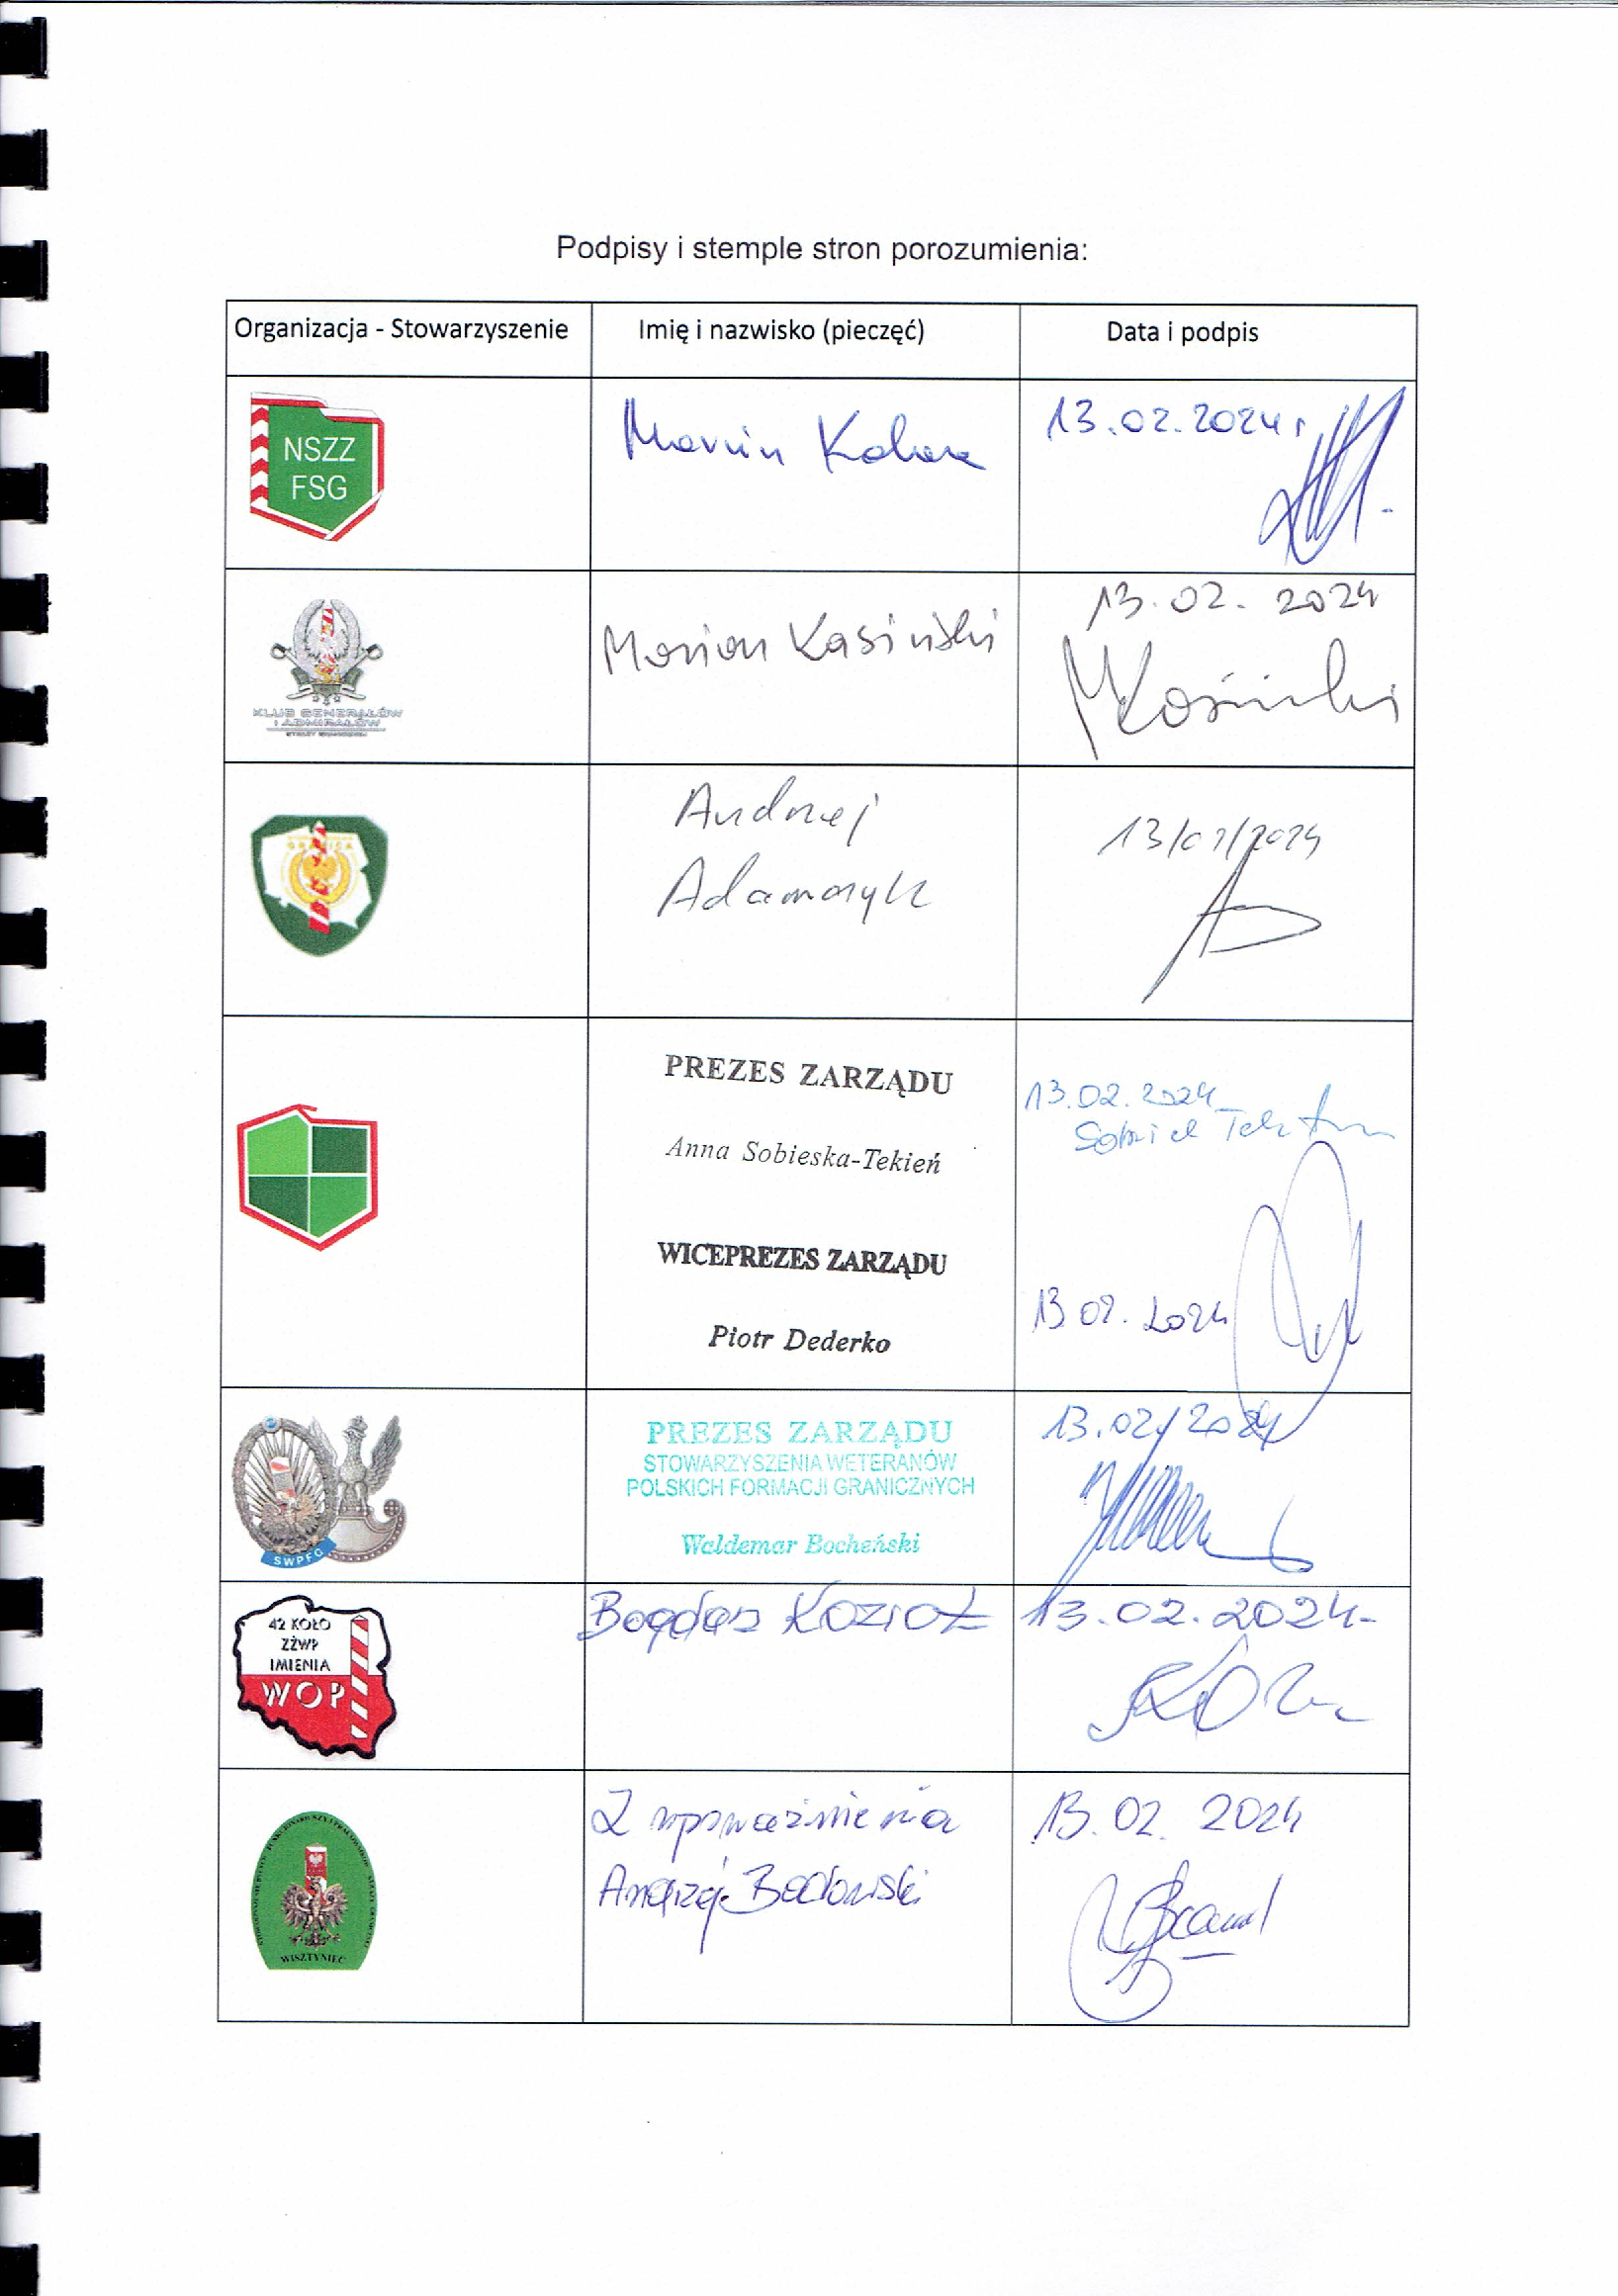 Podpisy i stemple stron porozumienia:
Organizacja - Stowarzyszenie
Imię i nazwisko (pieczęć)
Data i podpis
NSZZ
FSG
Marcin
13.02.2024r
KLUB GENERAŁÓW
I ADMIRAŁÓW
STRAŻY GRANICZNEJ
Marian Kasiński
13.02. 2024
MKasiński
GRANICA
Andrzej
Adamczyk
13/02/2024
PREZES ZARZĄDU
Anna Sobieska-Tekień
13.02.2024
WICEPREZES ZARZĄDU
Piotr Dederko
13 02. 2024
SWPFG
PREZES ZARZĄDU
STOWARZYSZENIA WETERANÓW
POLSKICH FORMACJI GRANICZNYCH
Waldemar Bocheński
13.02/2024
42 KOŁO
ZŻWP
IMIENIA
WOP
Bogdan KOZIOŁ
13.02.2024-
WISZTYNIEC
Z upoważnienia
Andrzej
13.02. 2024